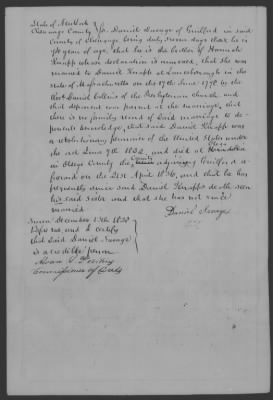 State of New York
Chenango County ss Daniel Savage of Guilford in said
County of Chenango being duly sworn says that he is
years of age, that he is the brother of Hannah
Knapp whose declaration is annexed, that she was
married to Daniel Knapp at Lanesborough in the
State of Massachusetts on the 17th June 1778 by the
Revd Daniel Collins of the Presbyterian church and
that deponent was present at the marriage, that
there is no family record of said marriage to de-
ponents knowledge, that said Daniel Knapp was
a revolutionary pensioner of the United States under
the act June 7th 1832 and died at
in Otsego County adjoining Guilford a-
foresaid on the 21st April 1836, and that he has
frequently since said Daniel Knapps death seen
his said sister and that she has not since
married
Daniel Savage
Sworn December 13th 1838
before me, and I certify
that said Daniel Savage
is a credible person
Commissioner of Deeds